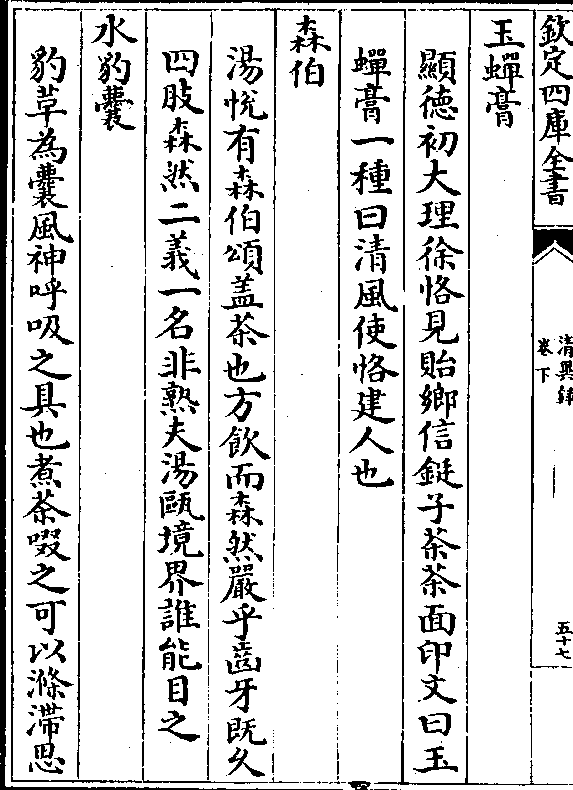 欽定四庫全書
清異錄
卷下
五十七
玉蟬膏
顯德初大理徐恪見貽鄉信鋌子茶茶面印文曰玉
蟬膏一種曰清風使恪建人也
森伯
湯悅有森伯頌盖茶也方飲而森然嚴乎齒牙既久
四肢森然二義一名非熟夫湯甌境界誰能目之
水豹囊
豹革為囊風神呼吸之具也煮茶啜之可以滌滯思